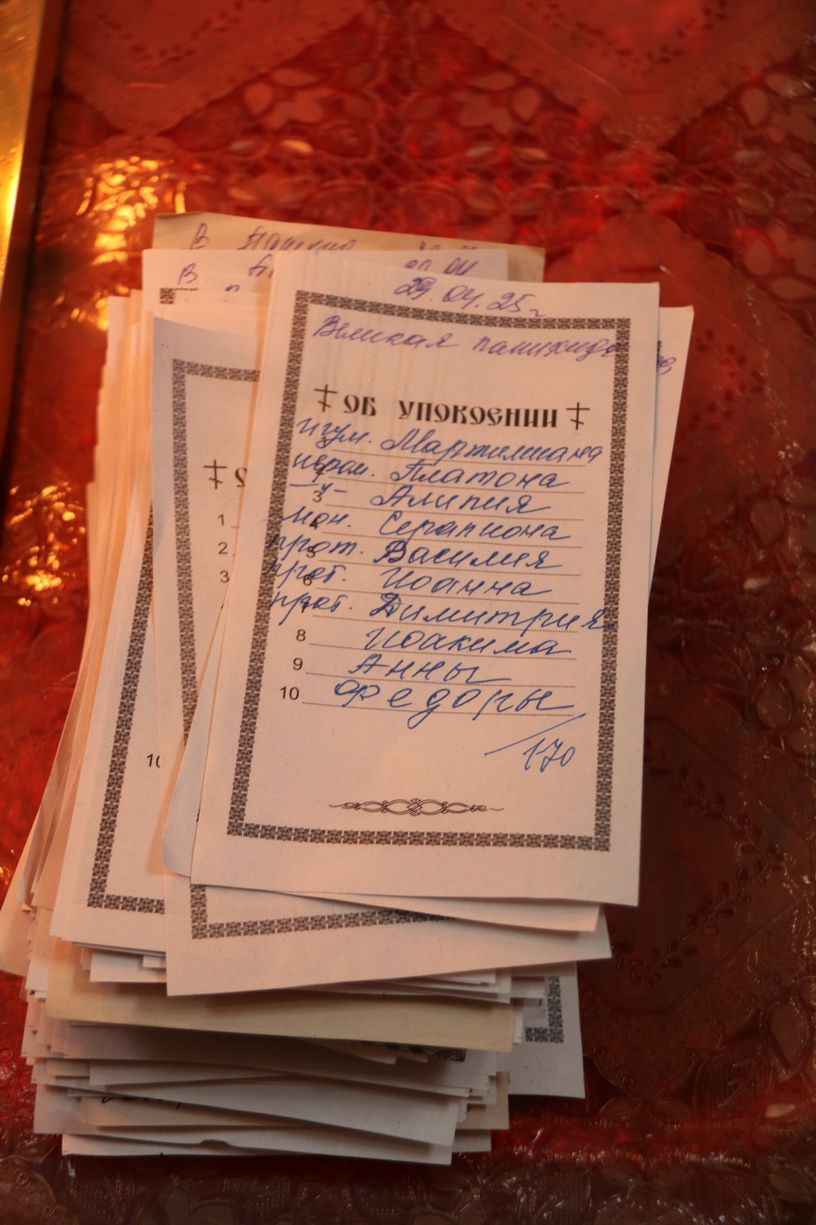 В
В
29.04.25г
Великая панихида
ОБ УПОКОЕНИИ
игум. Мартимиана
иером. Платона
3 -"- Алипия
мон. Серапиона
прот. Василия
прот. Иоанна
прот. Димитрия
8 Иоакима
9 Анны
10 Федоры
170
1
2
3
10